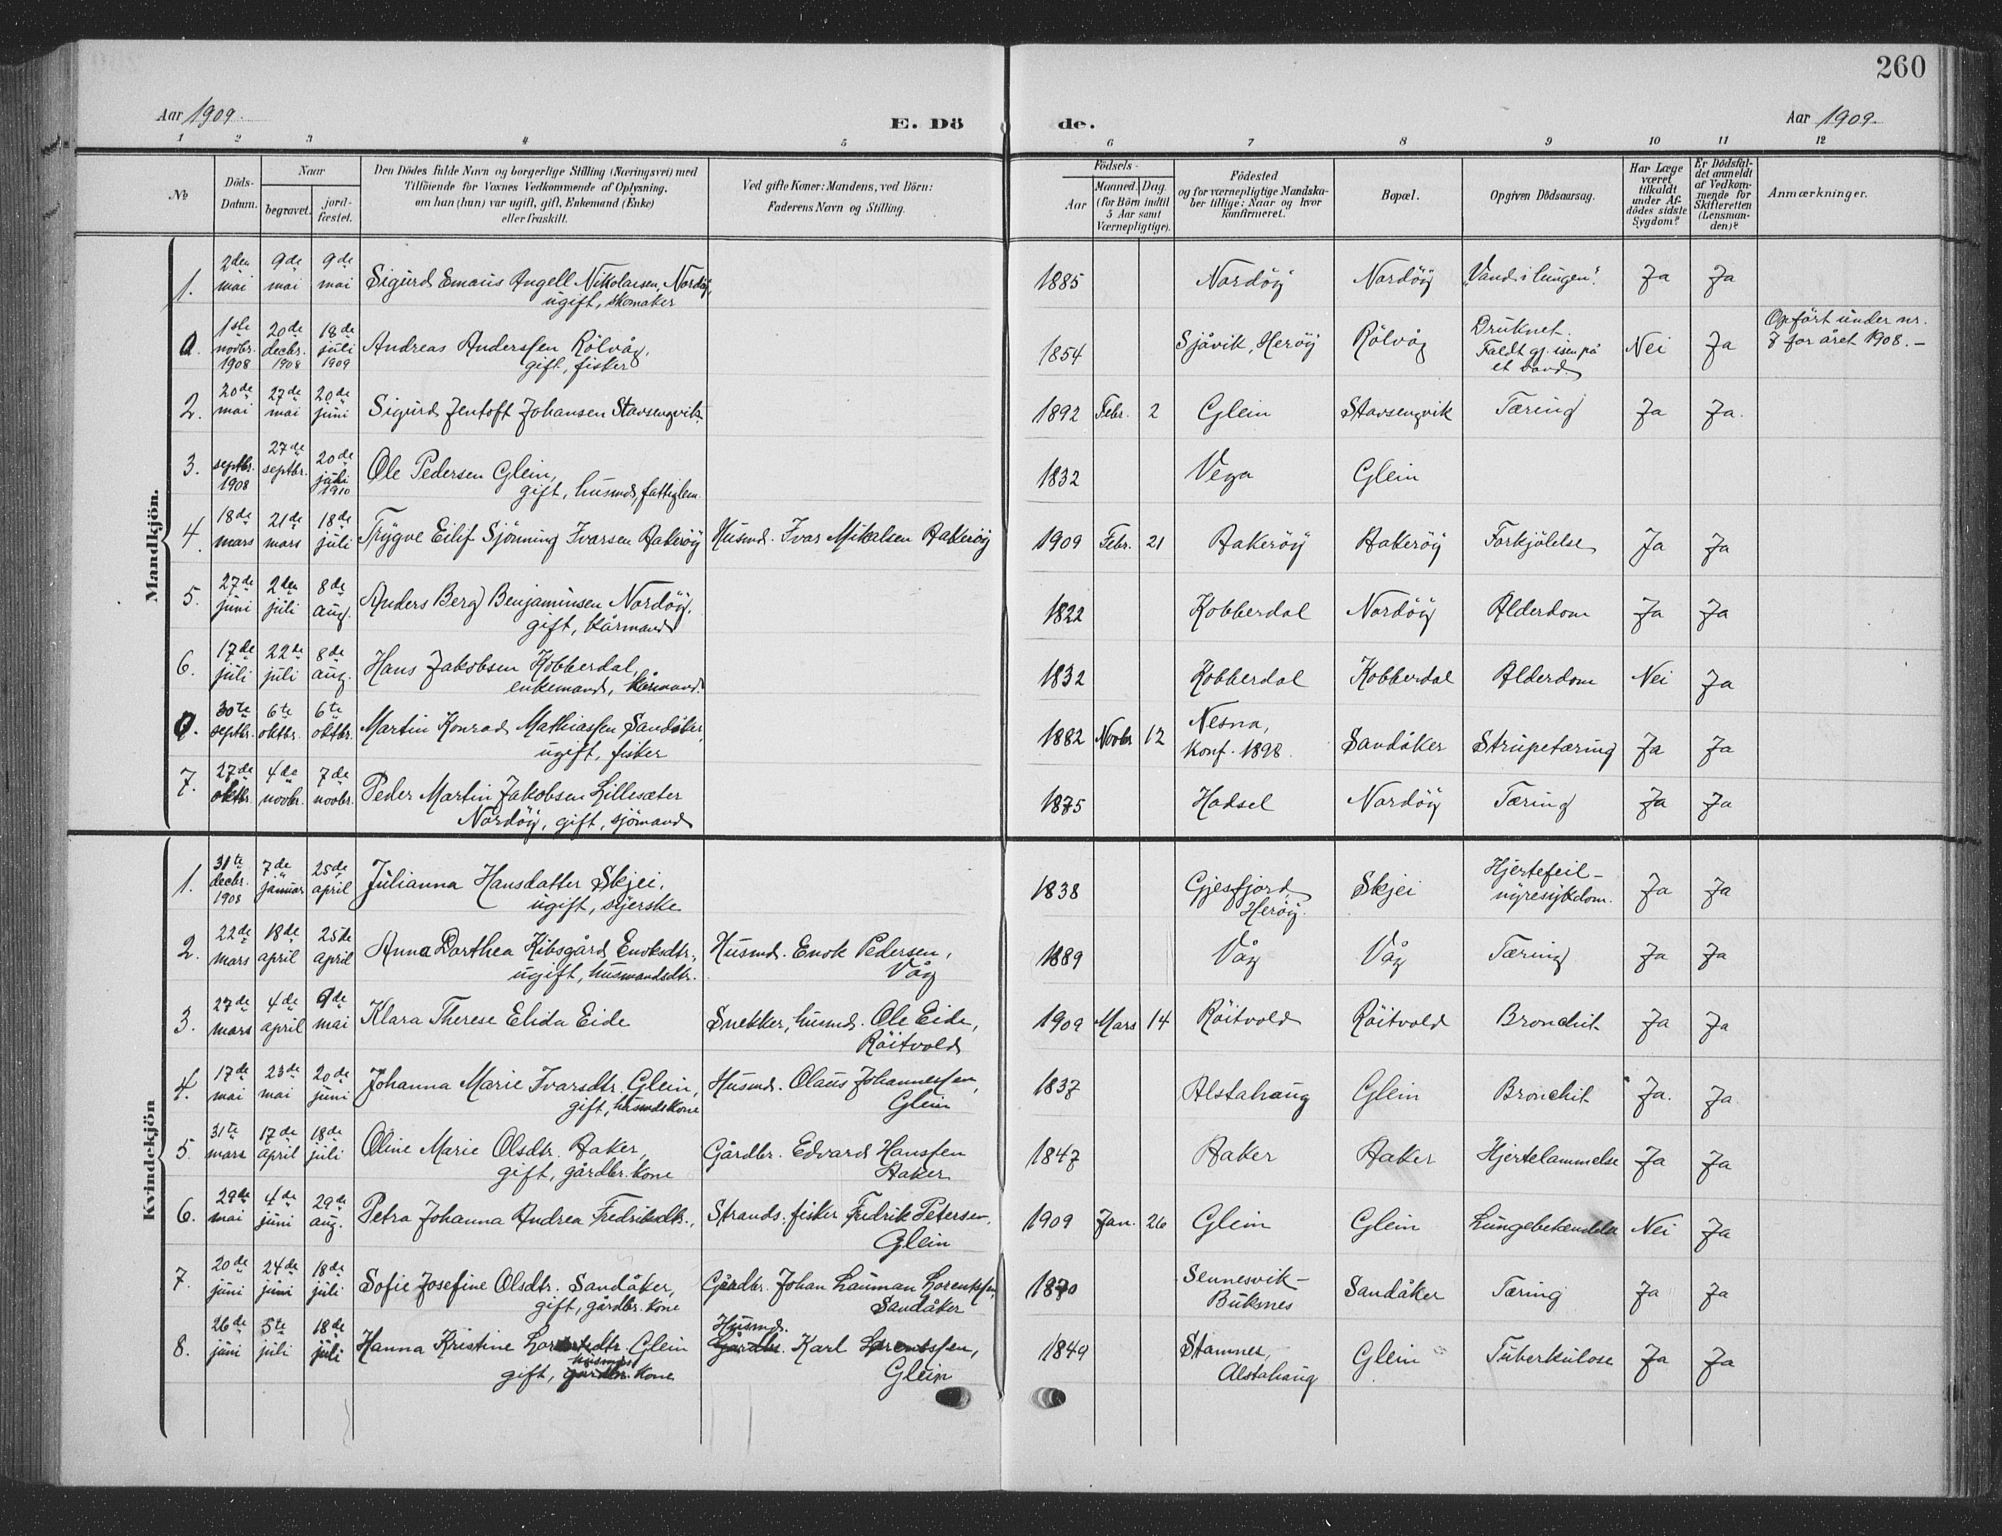 260
Aar 1909. E. Dö de. Aar 1909.
1 2 3 4 5 6 7 8 9 10 11 12
№ Döds-Datum. Naar begravet. jord-fæstet. Den Dödes fulde Navn og borgerlige Stilling (Næringsvei) med Tilföiende for Voxnes Vedkommende af Oplysning, om han (hun) var ugift, gift, Enkemand (Enke) eller fraskilt. Ved gifte Koner: Mandens, ved Börn: Faderens Navn og Stilling. Födsels- Aar Maaned. Dag. (for Börn indtil 5 Aar samt Værnepligtige). Födested og for værnepligtige Mandskaber tillige: Naar og hvor konfirmeret. Bopæl. Opgiven Dödsaarsag. Har Læge været tilkaldt under Afdödes sidste Sygdom? Er Dödsfaldet anmeldt af Vedkommende for Skifteretten (Lensmanden)? Anmærkninger.
Mandkjön.
1. 2den mai 9de mai 9de mai Sigurd Emaus Angell Nikolaisen, Nordöy, ugift, skomaker 1885 Nordöy Nordöy "Vand i lungen". Ja Ja
0. 1ste novbr. 1908 20de decbr. 1908 18de juli 1909 Andreas Anderssen Rölvåg, gift, fisker 1854 Sjåvik, Heröy Rölvåg Druknet. Faldt gj. isen på et vand. Nei Ja Opfört under nr. 8 for året 1908. –
2. 20de mai 27de mai 20de juni Sigurd Jentoft Johansen Stavsengvik. 1892 Febr. 2 Glein Stavsengvik Tæring Ja Ja.
3. septbr. 1908 27de septbr. 20de juli 1910 Ole Pedersen Glein, gift, husmd, fattiglem. 1832 Vega Glein
4. 18de mars 21de mars 18de juli Trygve Eilif Sjönning Ivarsen Hakeröy Husmd. Ivar Mikalsen Hakeröy 1909 Febr. 21 Hakeröy Hakeröy Forkjölelse Ja Ja
5. 27de juni 2den juli 8de aug. Anders Berg Benjaminsen Nordöy. gift, kårmand 1822 Kobberdal Nordöy Alderdom Ja Ja
6. 17de juli 22de juli 8de aug. Hans Jakobsen Kobberdal, enkemand, kårmand 1832 Kobberdal Kobberdal Alderdom Nei Ja
0. 30te septbr. 6te oktbr. 6te oktbr. Martin Konrad Mathiassen Sandåker, ugift, fisker 1882 Novbr 12 Nesna, konf. 1898. Sandåker Strupetæring Ja Ja
7. 27de oktbr. 4de novbr. 7de novbr. Peder Martin Jakobsen Lillesæter Nordöy, gift, sjömand 1875 Hadsel Nordöy Tæring Ja Ja
Kvindekjön
1. 31te decbr. 1908 7de januar 25de april Julianna Hansdatter Skjei, ugift, syerske 1838 Gjesfjord Heröy. Skjei Hjertefeil – nyresykdom. Ja Ja
2. 22de mars 18de april 25de april Anna Dorthea Kibsgård Enoksdtr., ugift, husmandsdtr. Husmd. Enok Pedersen, Våg 1889 Våg Våg Tæring Ja Ja
3. 27de mars 4de april 9de mai Klara Therese Elida Eide Snekker, husmd. Ole Eide, Röitvold 1909 Mars 14 Röitvold Röitvold Bronchit Ja Ja
4. 17de mai 23de mai 20de juni Johanna Marie Ivarsdtr. Glein, gift, husmdskone Husmd. Olaus Johannessen, Glein 1837 Alstahaug Glein Bronchit Ja. Ja
5. 31te mars 17de april 18de juli Oline Marie Olsdtr. Haker, gift, gårdbr. kone Gårdbr. Edvard Hanssen Haker 1847 Haker Haker Hjertelammelse Ja Ja
6. 29de mai 4de juni 29de aug. Petra Johanna Andrea Fredriksdtr., Strands. fisker Fredrik Petersen, Glein 1909 Jan. 26 Glein Glein Lungebetændelse Nei Ja
7. 20de juni 24de juni 18de juli Sofie Josefine Olsdtr. Sandåker, gift, gårdbr. kone Gårdbr. Johan Lauman Lorentssen Sandåker 1870 Sennesvik – Buksnes Sandåker Tæring Ja Ja
8. 26de juni 5te juli 18de juli Hanna Kristine Glein gift, husmds kone Husmd. Gårdbr. Karl Lorentssen, Glein 1849 Stamnes, Alstahaug Glein Tuberkulose Ja Ja